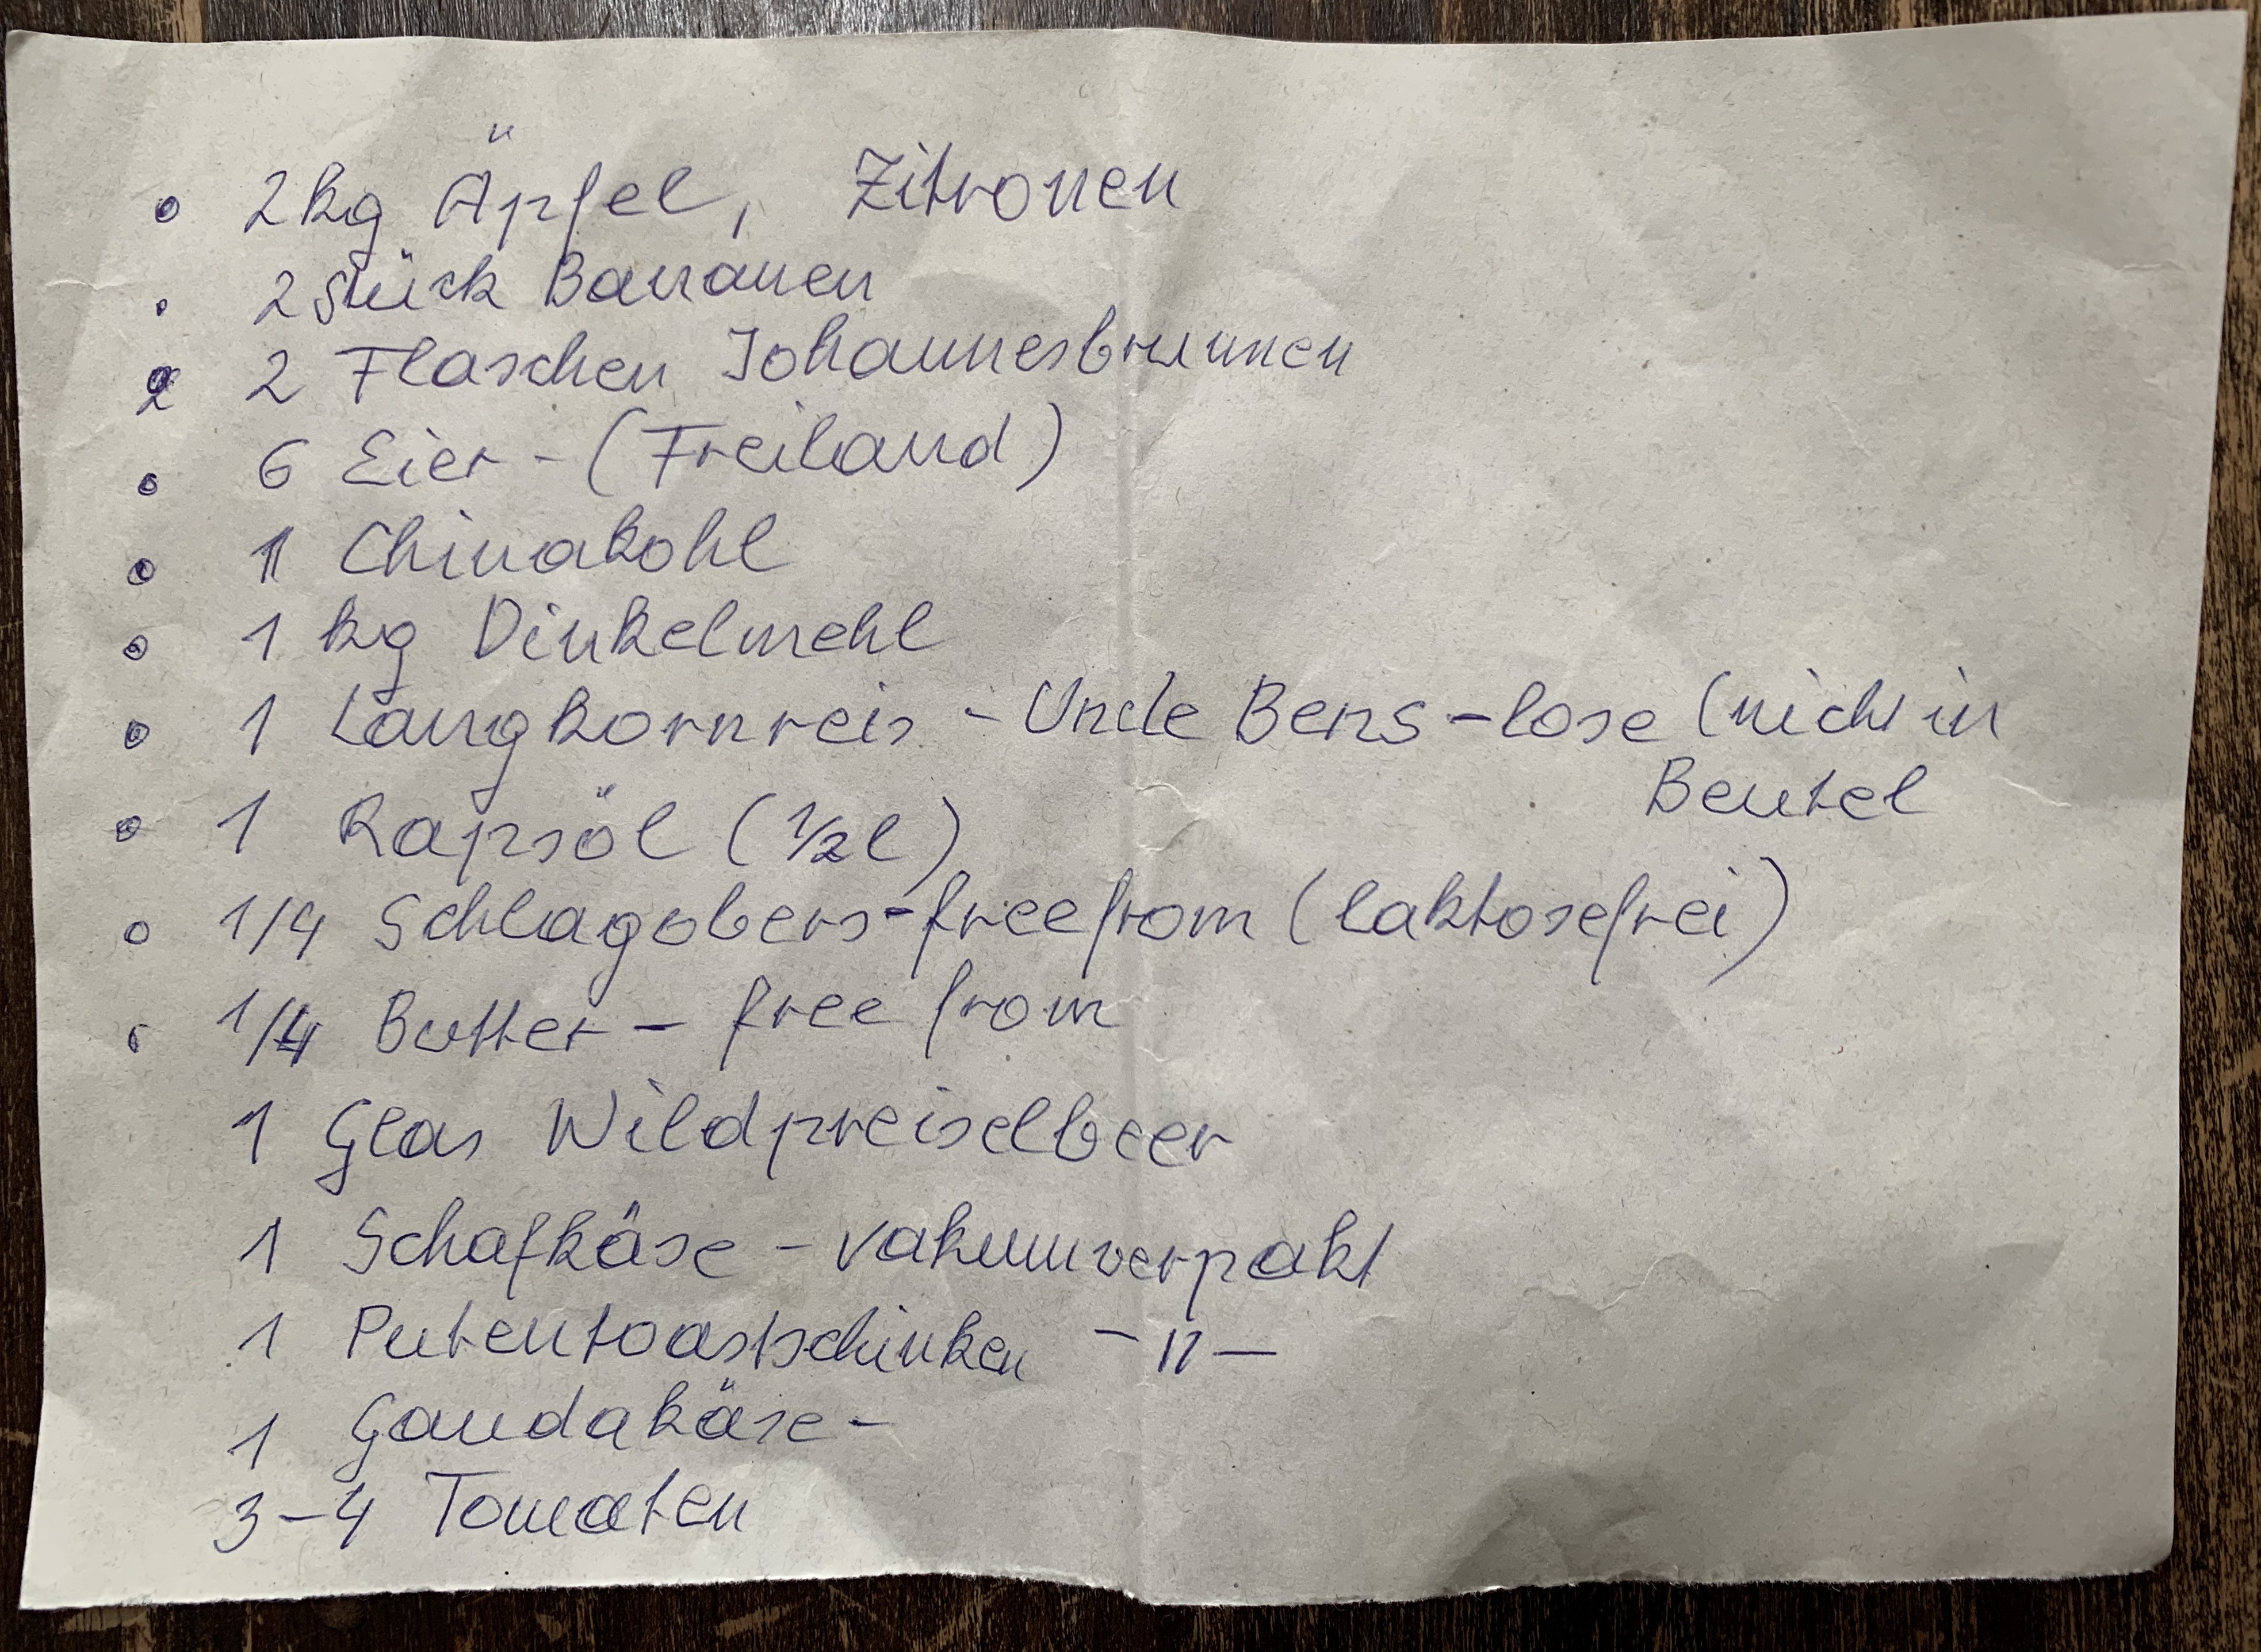 2kg Äpfel, Zitronen
2 Stück Bananen
2 Flaschen Johannesbrunnen
6 Eier - (Freiland)
1 Chinakohl
1 kg Dinkelmehl
1 Langkornreis - Uncle Bens - lose (nicht in
Beutel
1 Rapsöl (1/2 l)
1/4 Schlagobers - freefrom (laktosefrei)
1/4 Butter - free from
1 Glas Wildpreiselbeer
1 Schafkäse - vakuumverpakt
1 Putentoastschinken - 11 -
1 Gaudakäse -
3-4 Tomaten